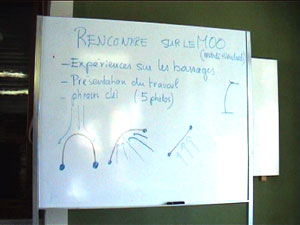 RENCONTRE SUR LE MOO
- Expériences sur les barrages
- Présentation du travail
- phrase clé (5 photos)